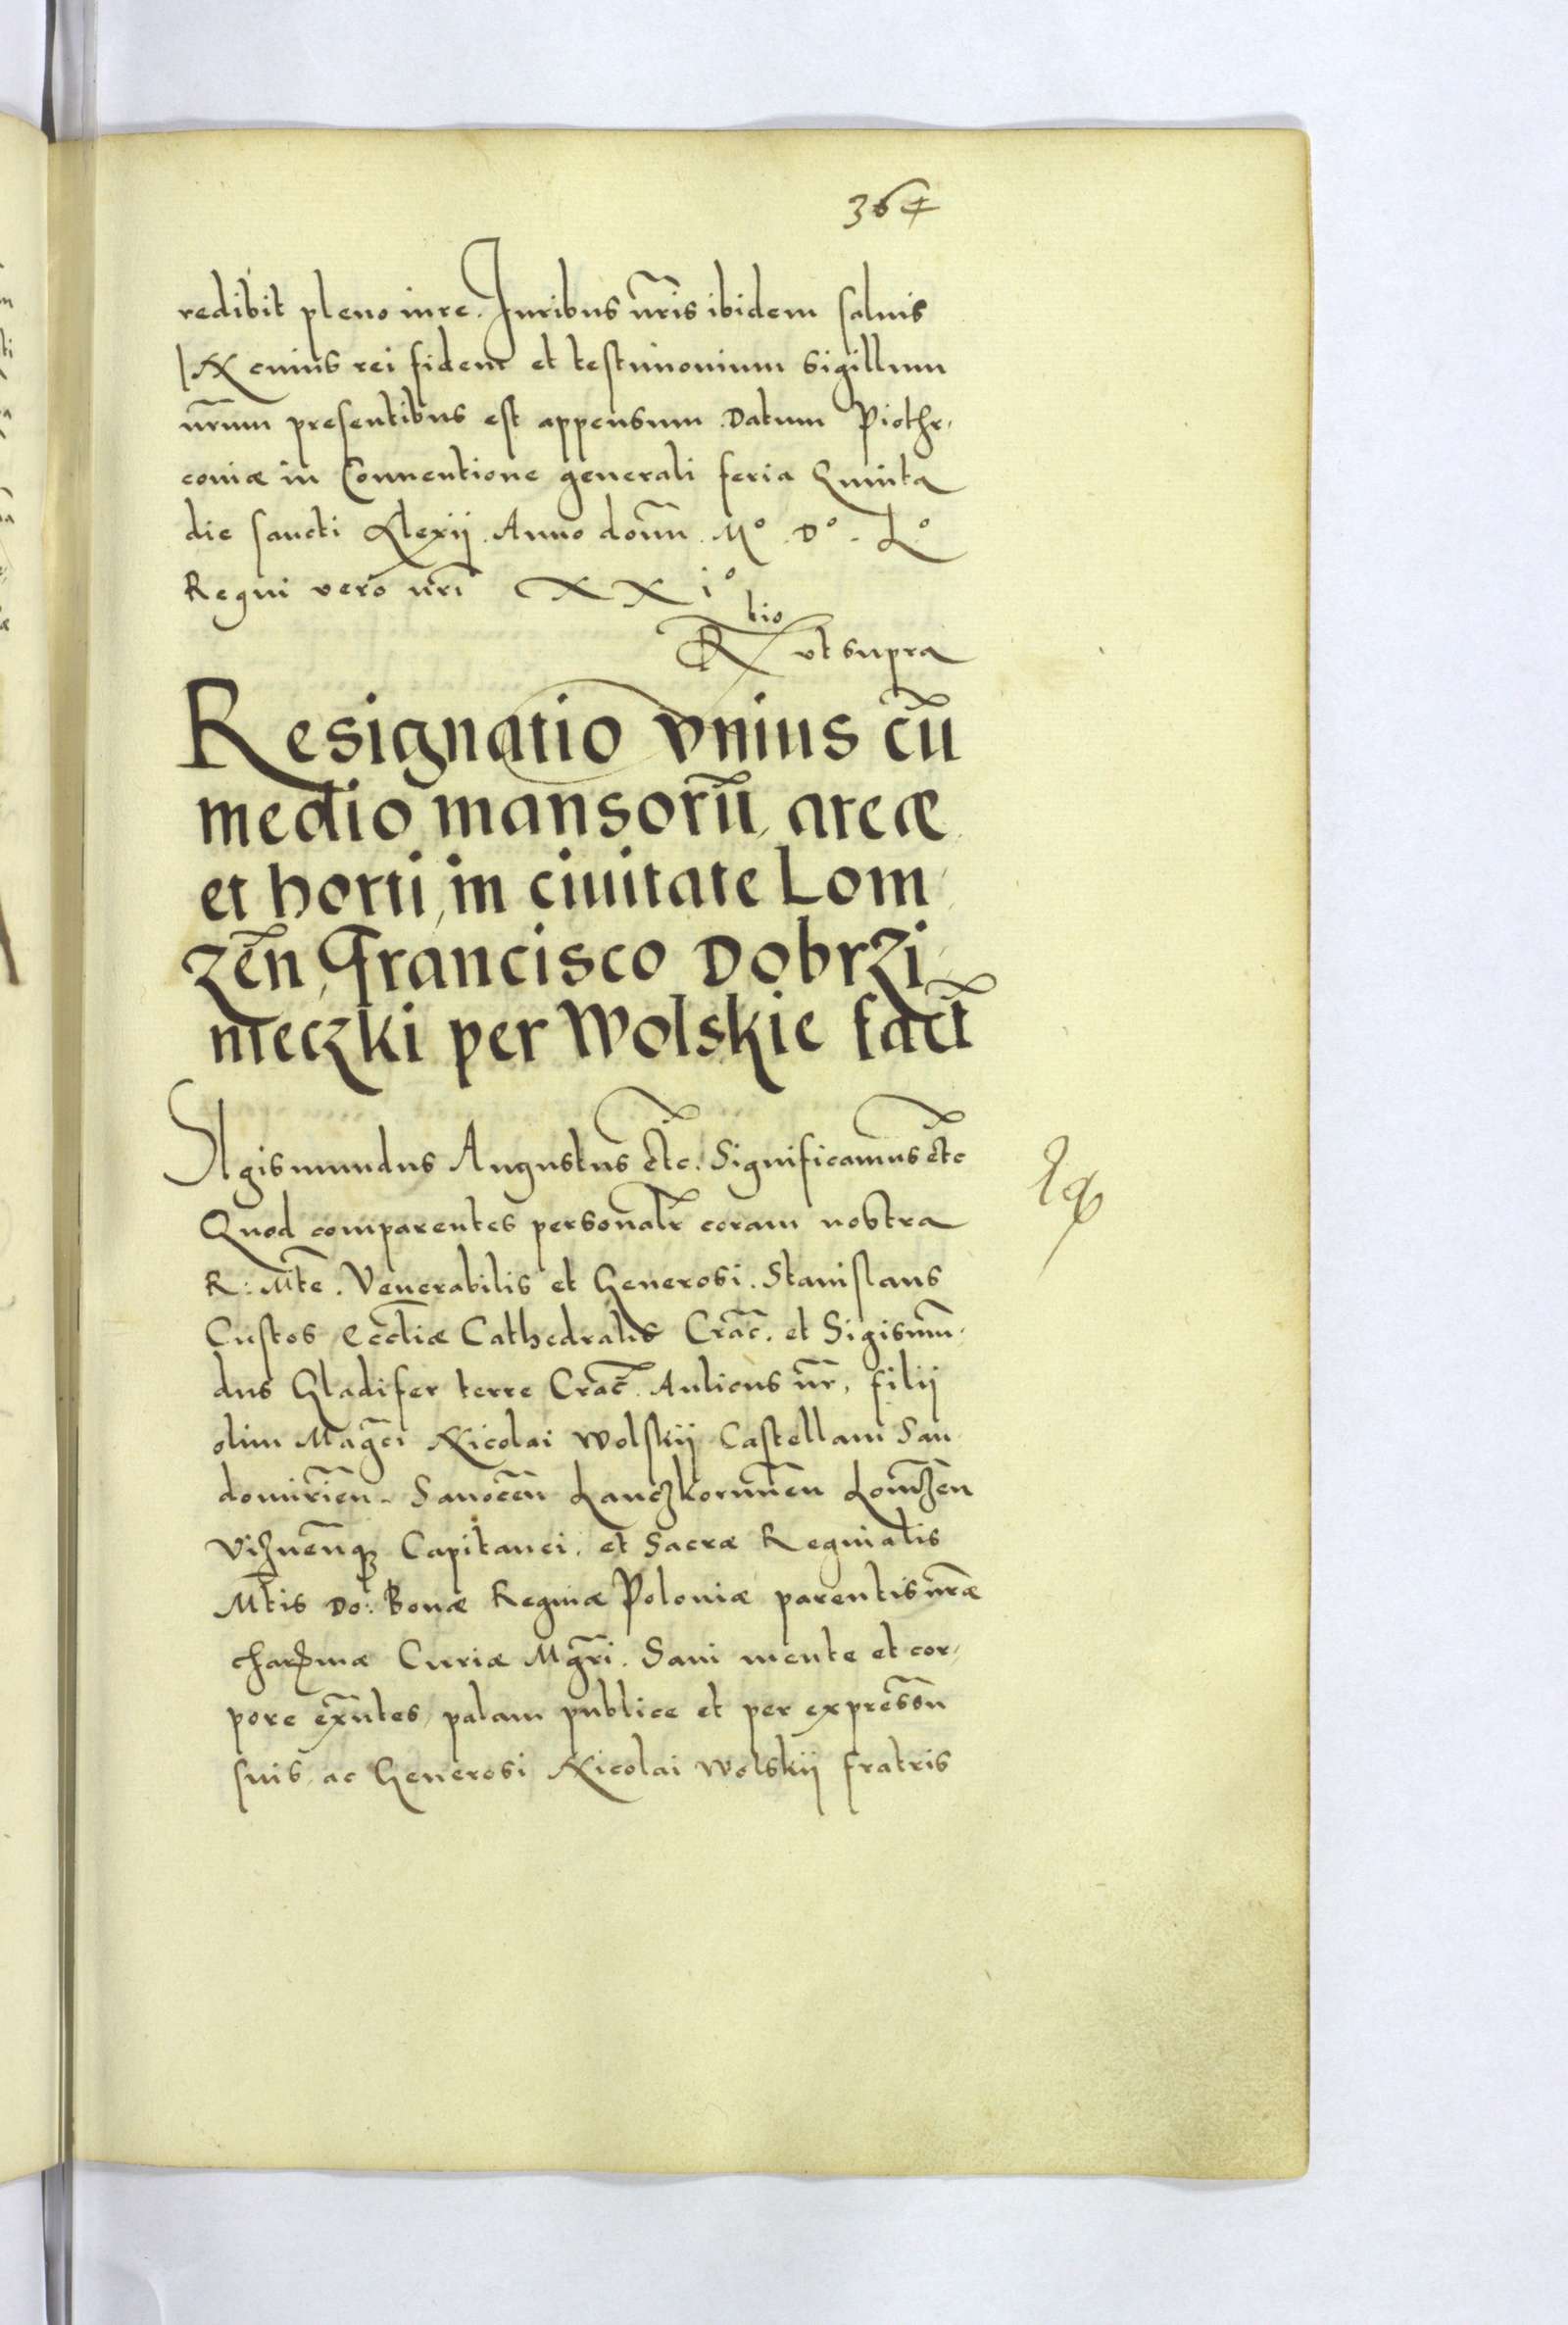 364
redibit pleno iure. Iuribus nr̃is ibidem saluis
IN cuius rei fidem et testimonium sigillum
nr̃um presentibus est appensum. Datum Piothr,
couiæ in Conuentione generali feria Quinta
die sancti Alexii. Anno domĩ. Mº. Dº. Lº
Regni vero nrĩ XXiº
Rtio vt supra
Resignatio vnius cũ
medio mansorũ, areæ
et horti, in ciuitate Lom,
zeñ, Francisco Dobrzi,
nieczki per Wolskie fact̃
SIgismundus Augustus etc̃. Significamus etc̃
Quod comparentes personalr̃ coram nostra
R: Mte͂. Venerabilis et Generosi. Stanislaus
Custos Eccl̃iæ Cathedralis Crac̃. et Sigismũ,
dus Gladifer terre Crac̃. Aulicus nr̃, filii
olim Magc̃i Nicolai Wolskij Castellani San
domirieñ. Sanoceñ Lanczkoruneñ Lomzeñ
Vizneñq₃ Capitanei. et Sacræ Reginalis
Mt̃is Do: Bonæ Reginæ Poloniæ parentis nr̃æ
charissmæ Curiæ Mgr̃i. Sani mente et cor,
pore exñtes, palam publice et per expressũ
suis, ac Generosi Nicolai Wolskij fratris